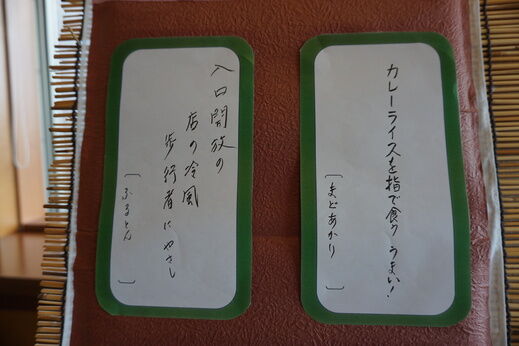 カレーライスを指で食り うまい!
〔まどあかり〕
入口開放の
店の冷風
歩行者にやさし
〔ふるとん〕